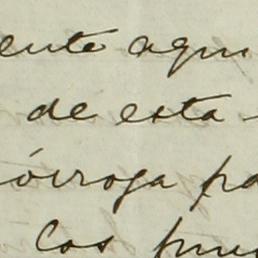 ente aqui
de esta
órroga pa
los pue